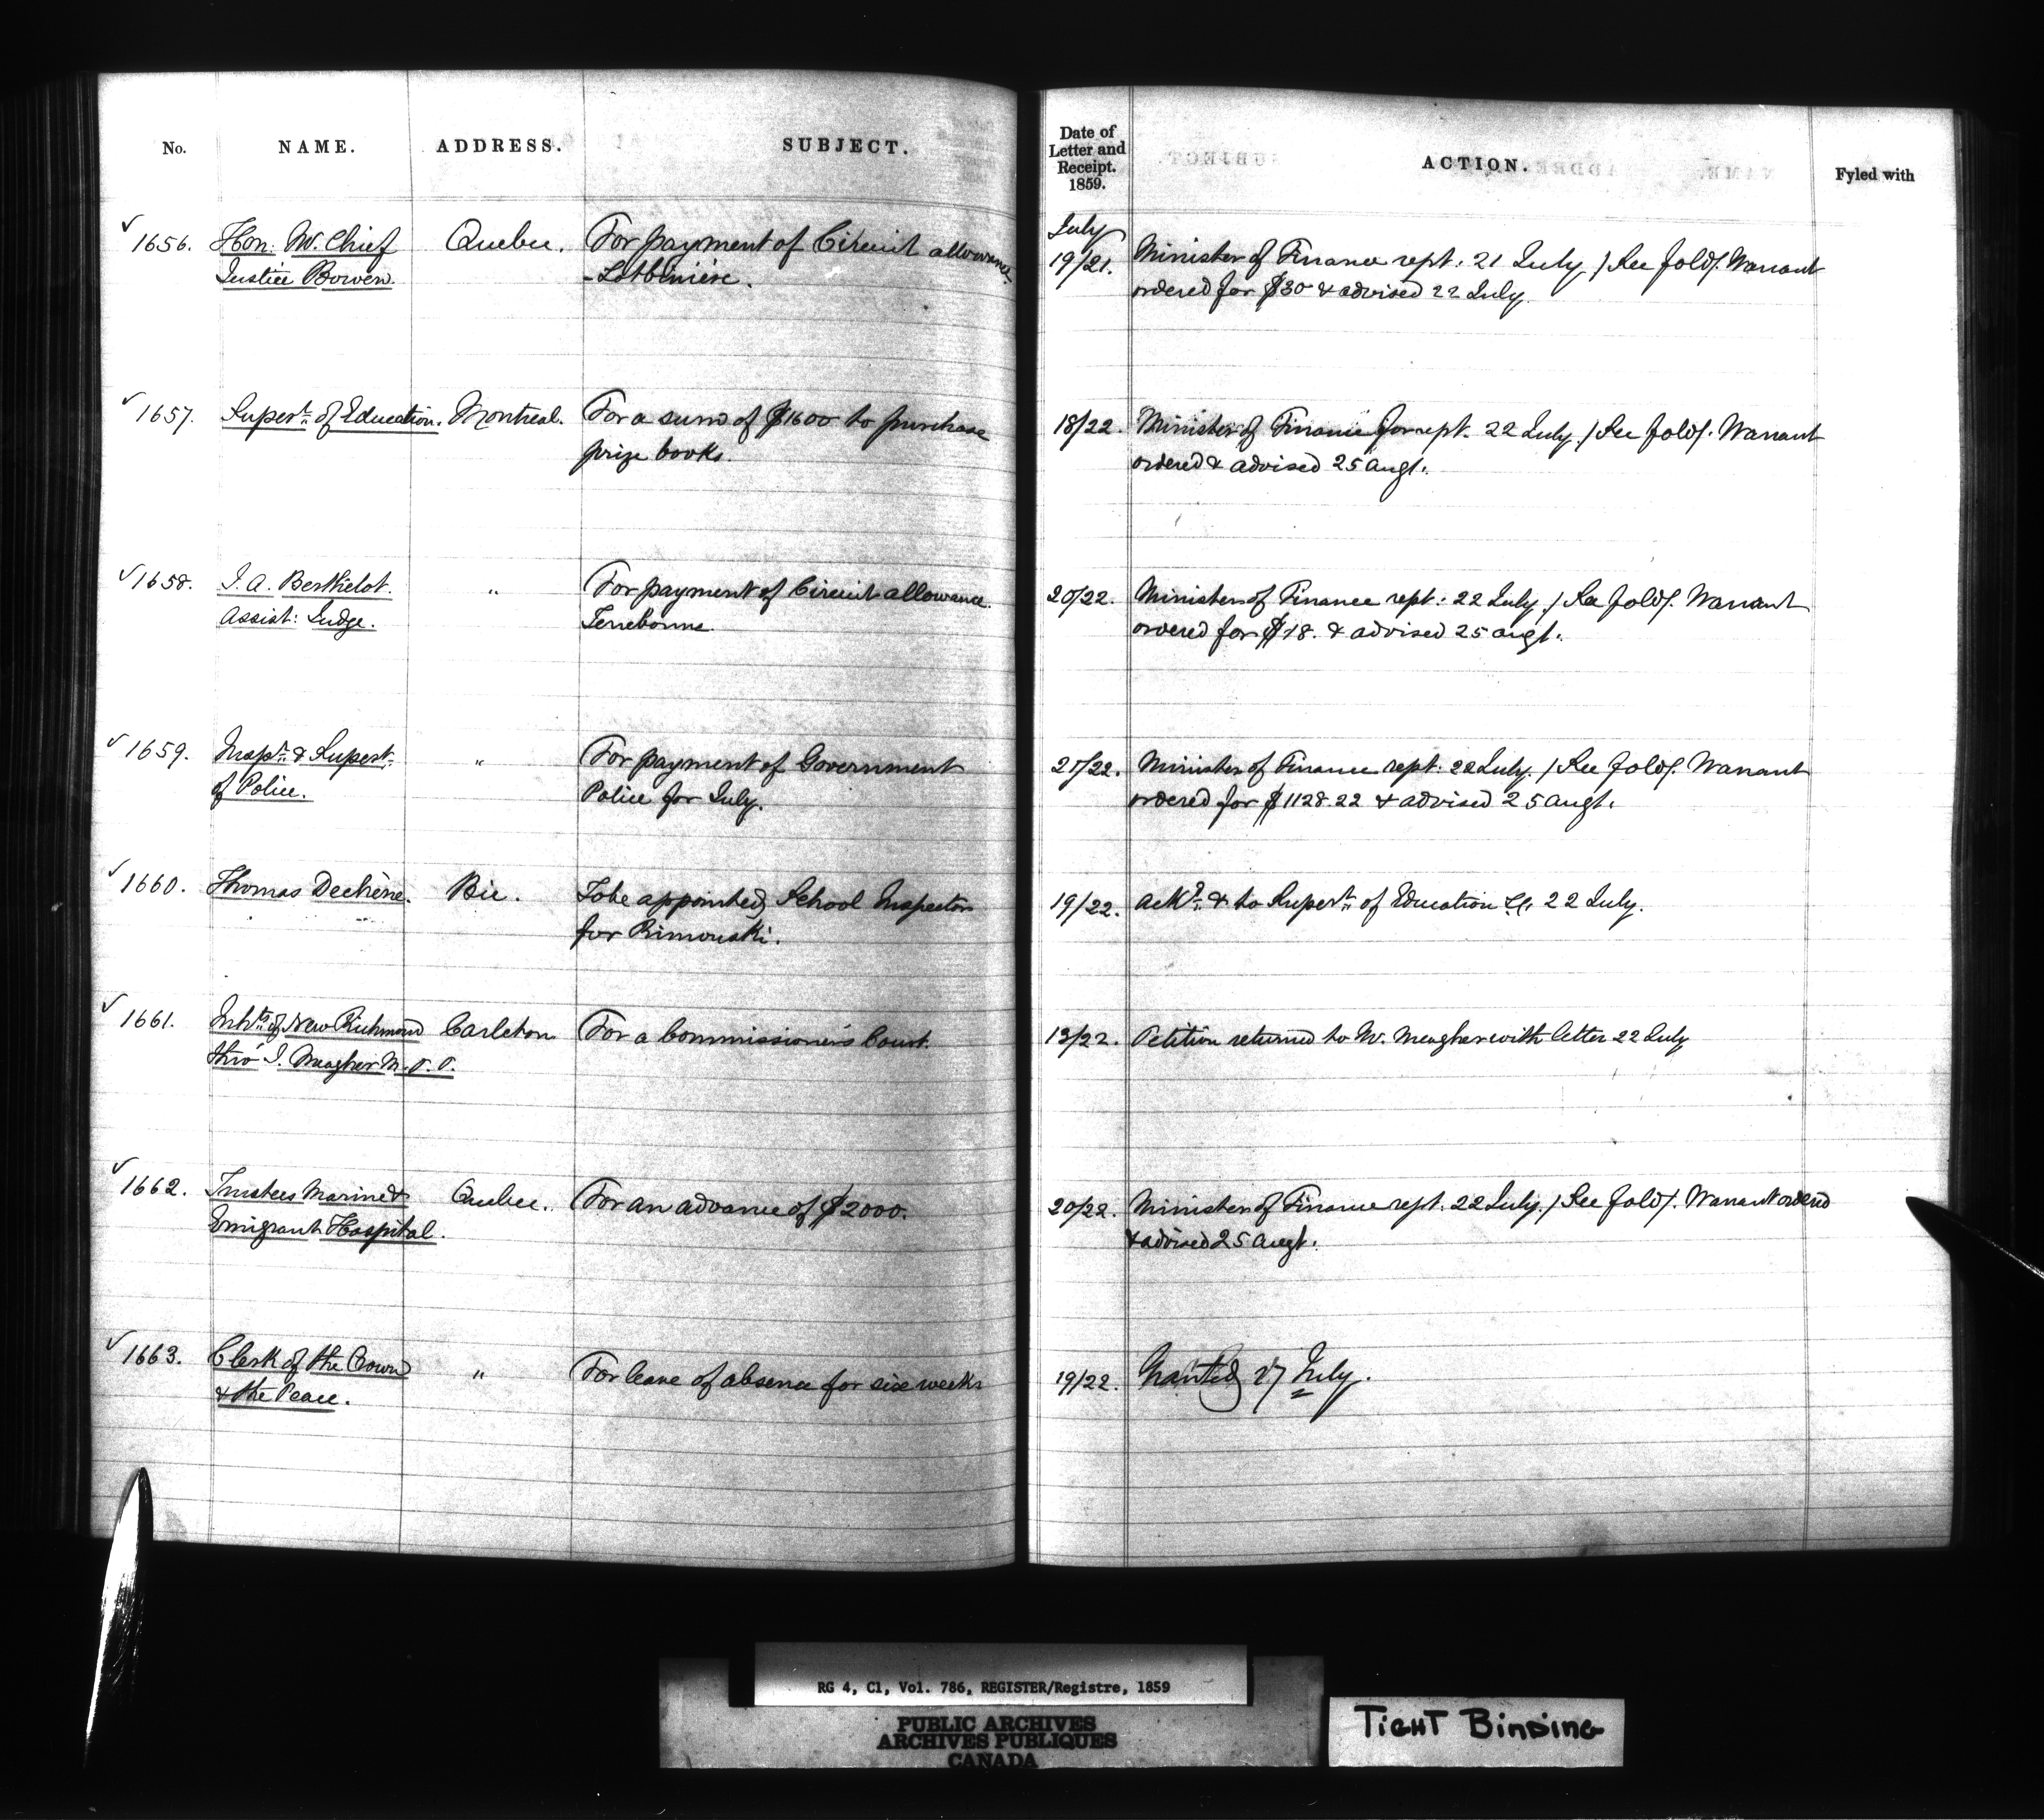 No. NAME. ADDRESS. SUBJECT.
Date of Letter and Receipt. 1859. ACTION. Fyled with
July
1656. Hon. Mr. Chief Quebec. For payment of Circuit allowance 19/21. Minister of Finance rept. 21 July / See fold/. Warrant
Justice Bowen. - Lotbinière. ordered for $30 & advised 22 July.
1657. Supert. of Education. Montreal. For a sum of $1600 to purchase 18/22. Minister of Finance for rept. 22 July / See fold/. Warrant
prize books. ordered & advised 25 Augt.
1658. J. A. Berthelot. " For payment of Circuit allowance. 20/22. Minister of Finance rept. 22 July / See fold/. Warrant
Assist: Judge. Terrebonne. ordered for $18. & advised 25 Augt.
1659. Inspr. & Supert. " For payment of Government 21/22. Minister of Finance rept. 22 July. / See fold/. Warrant
of Police. Police for July. ordered for $1128.22 & advised 25 Augt.
1660. Thomas Dechène. Bic. To be appointed School Inspector 19/22. Ackd. & to Supert. of Education 22 July.
for Rimouski.
1661. Inhts. of New Richmond Carleton For a Commissioner's Court. 13/22. Petition returned to Mr. Meagher with letter 22 July
thro' J. Meagher M.P.P.
1662. Trustees Marine & Quebec. For an advance of $2000. 20/22. Minister of Finance rept. 22 July. / See fold/. Warrant ordered
Emigrant Hospital. & advised 25 Augt.
1663. Clerk of the Crown " For leave of absence for six weeks 19/22. Granted 27 July.
& the Peace.
RG 4, C1, Vol. 786, REGISTER/Registre, 1859
PUBLIC ARCHIVES
ARCHIVES PUBLIQUES
CANADA
TIGHT BINDING